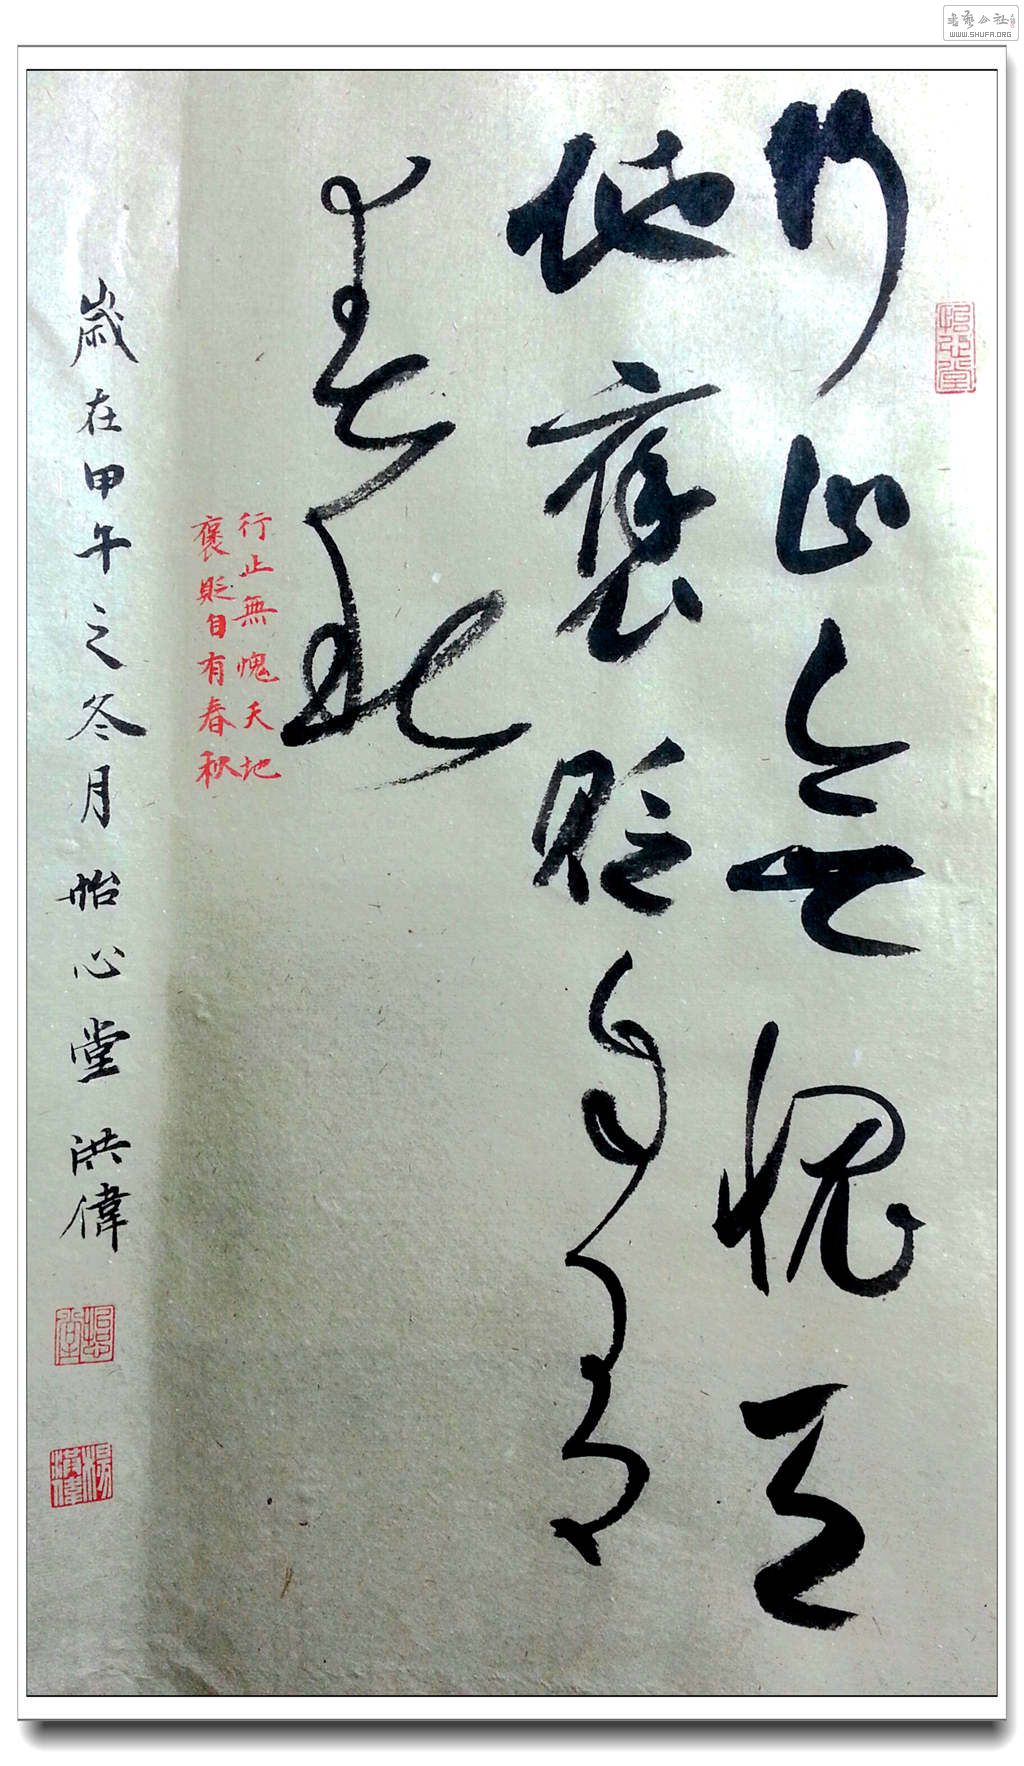 書藝公社
WWW.SHUFA.ORG
怡心堂
行止無愧天
地褒貶自有
春秋
行止無愧天地
褒貶自有春秋
歲在甲午之冬月怡心堂洪偉